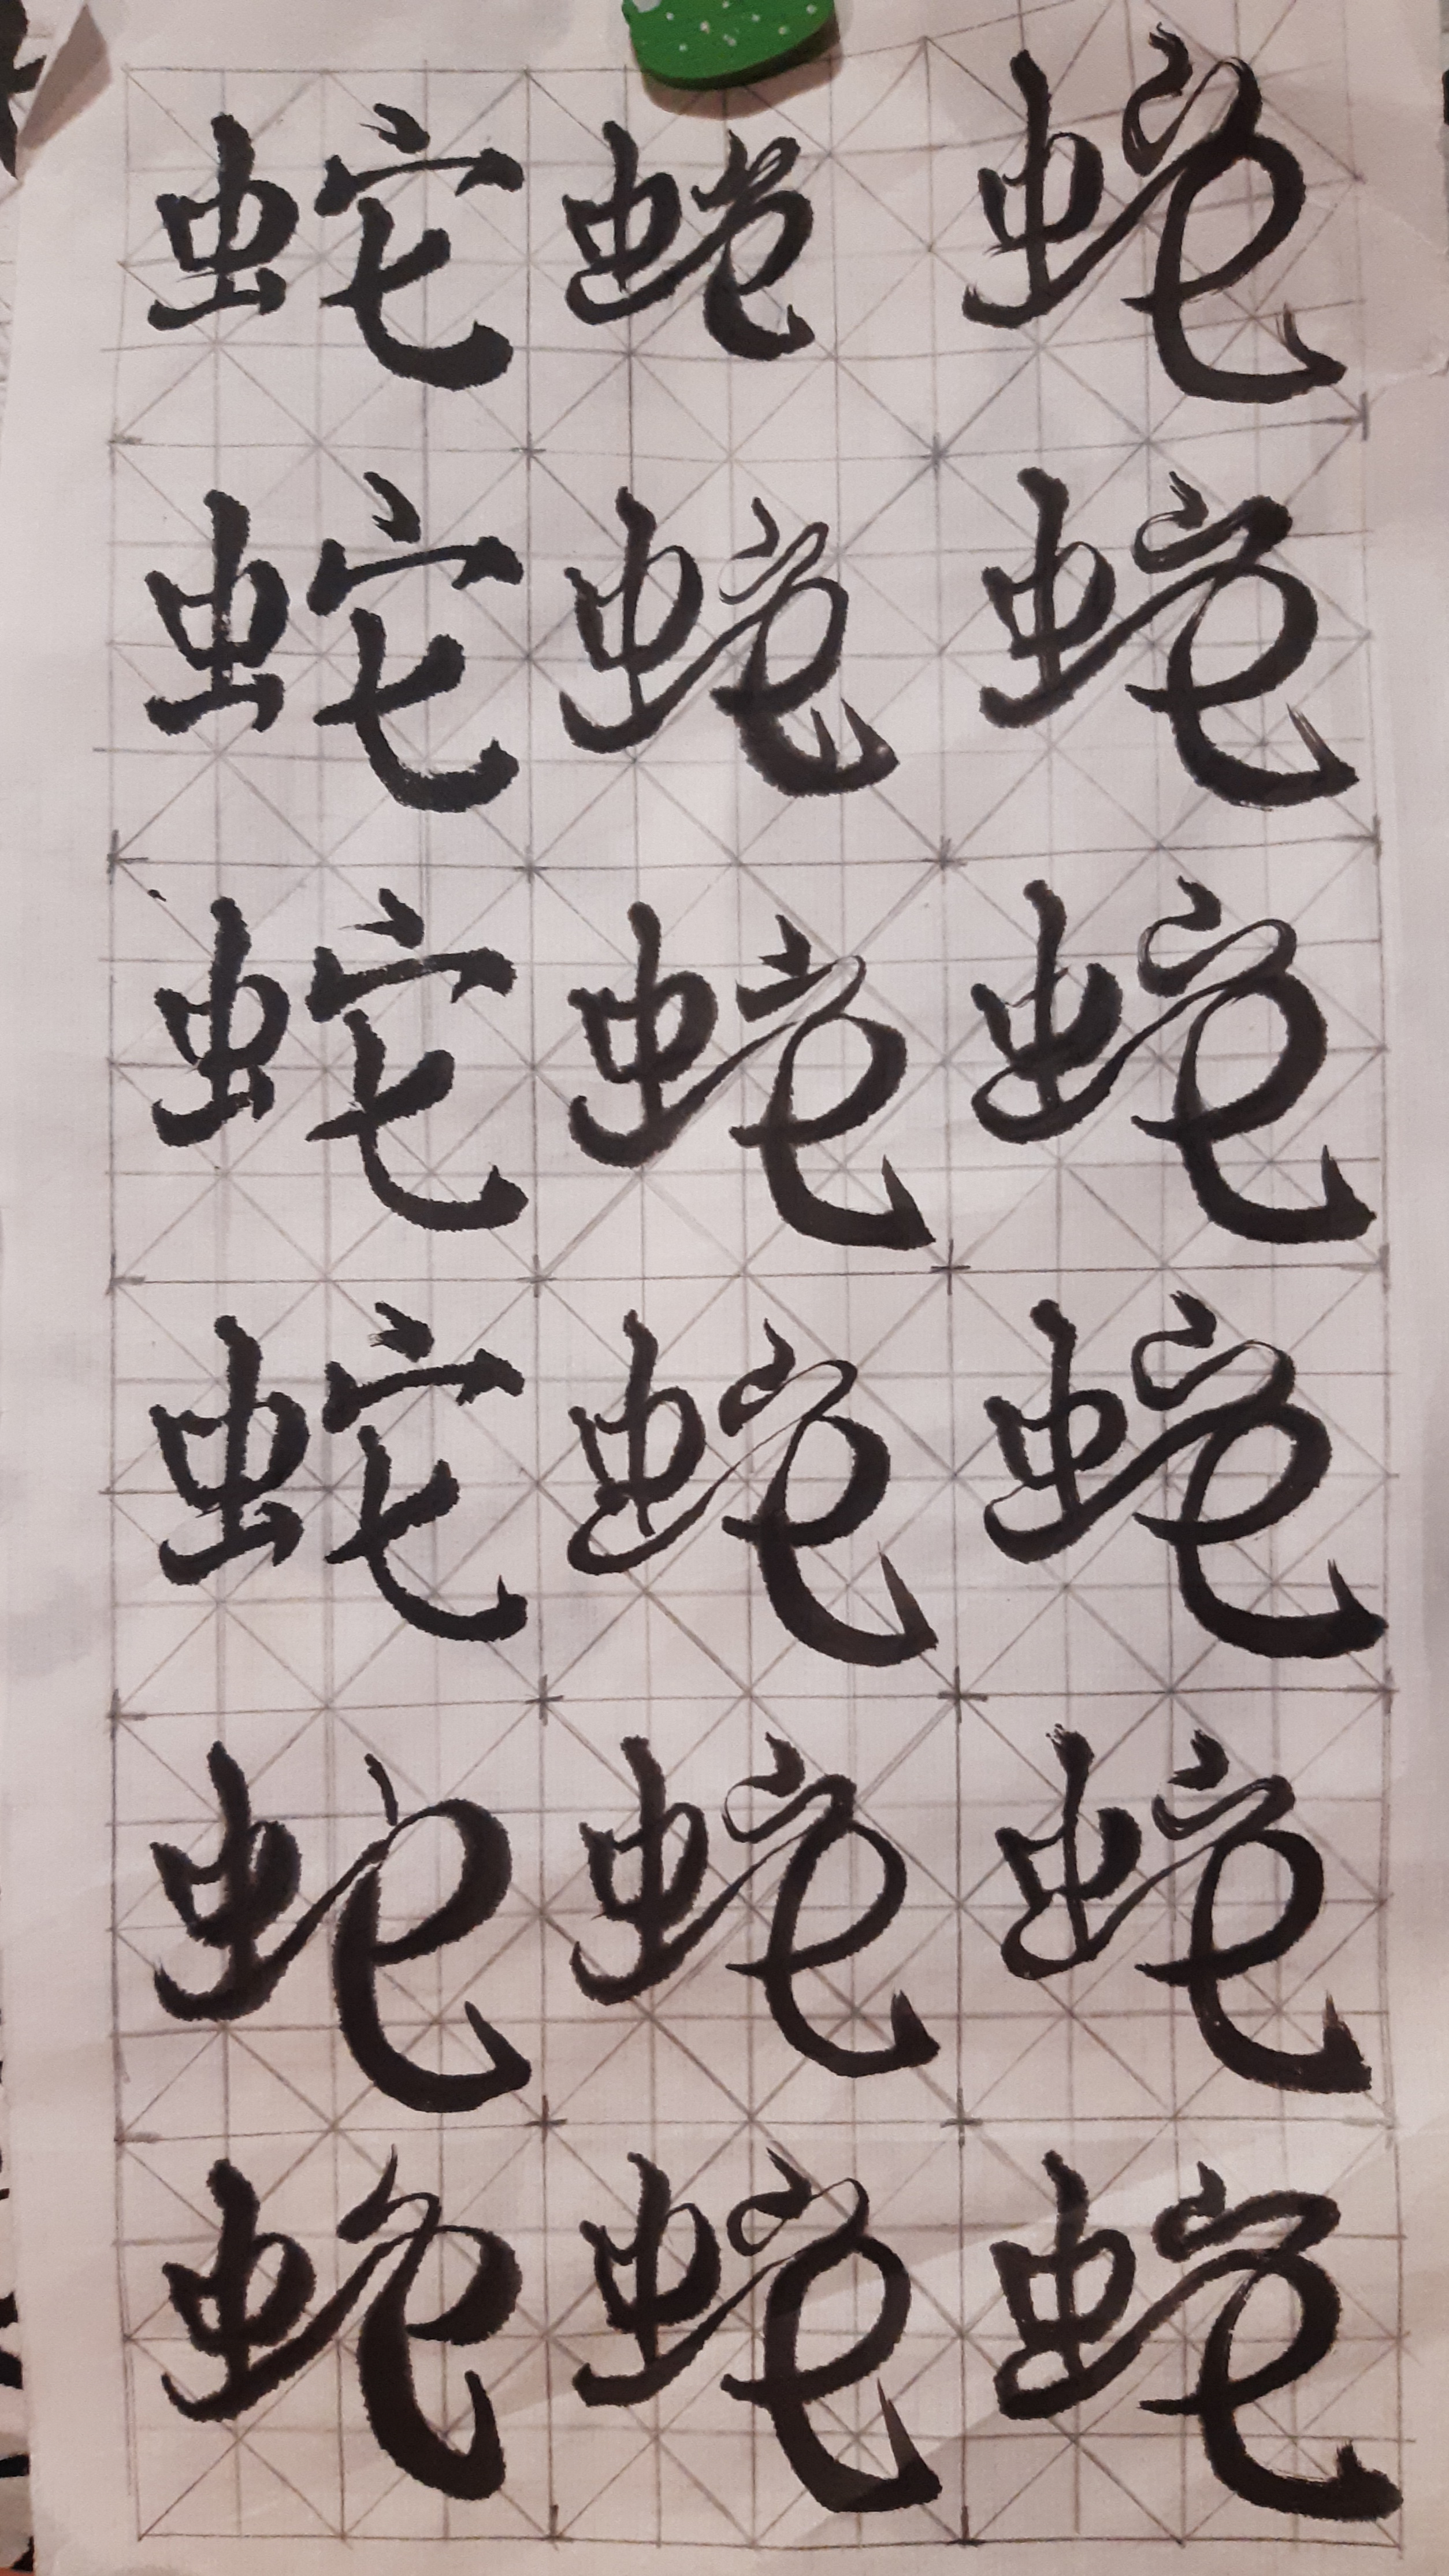 蛇蛇蛇
蛇蛇蛇
蛇蛇蛇
蛇蛇蛇
蛇蛇蛇
蛇蛇蛇